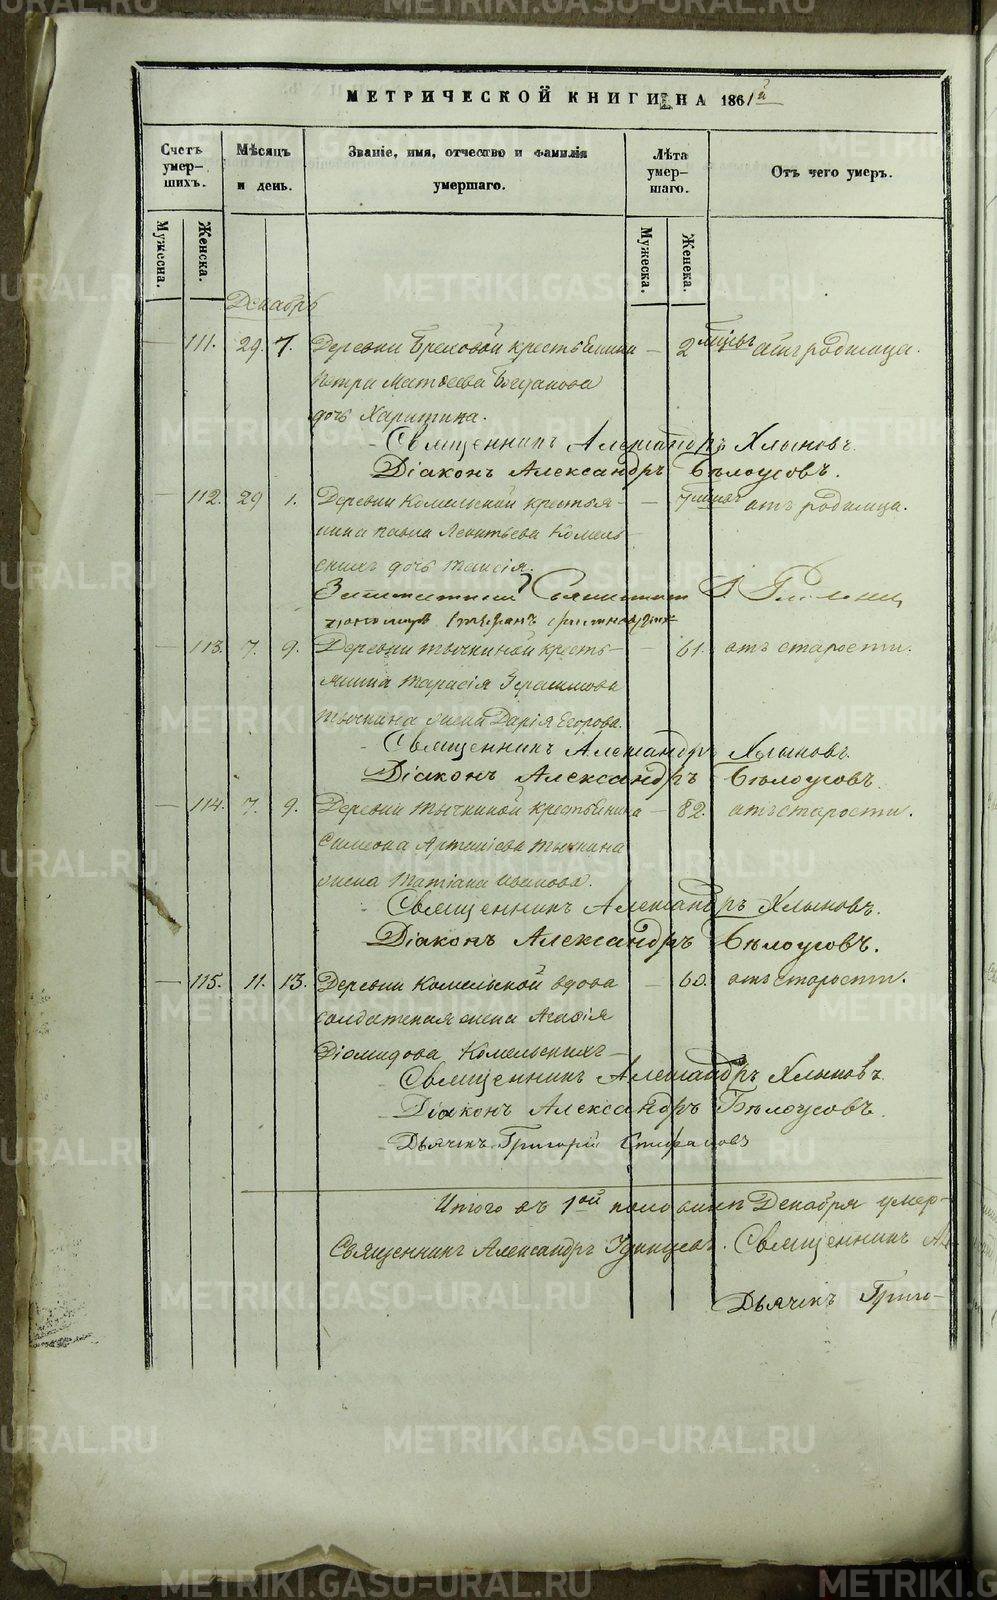 МЕТРИЧЕСКОЙ КНИГИ НА 1861й
Счетъ умер-шихъ.
Мѣсяцъ и день.
Званіе, имя, отчество и фамилія умершаго.
Лѣта умер-шаго.
Отъ чего умеръ.
Мужеска.
Женска.
Мужеска.
Женска.
Декабрь
— 111. 29. 7. Деревни Бреховой крестьянина — 2 мцвъ отъ родимца.
Петра Матѳеева Богданова
дочь Харитина.
Священникъ Александръ Хлыновъ.
Діаконъ Александръ Бѣлоусовъ.
— 112. 29 1. Деревни Комельской крестья- — 7 мцвъ отъ родимца.
нина Павла Леонтьева Комель-
скихъ дочь Таисія.
— 113. 7. 9. Деревни Тычкиной кресть- — 61. отъ старости.
янина Тарасія Герасимова
Тычкина жена Дарія Егорова.
Священникъ Александръ Хлыновъ.
Діаконъ Александръ Бѣлоусовъ.
— 114. 7. 9. Деревни Тычкиной крестьянина — 82. отъ старости.
Симеона Артеміева Тычкина
жена Татіана Иванова.
Священникъ Александръ Хлыновъ.
Діаконъ Александръ Бѣлоусовъ.
— 115. 11. 13. Деревни Комельской вдова — 60. отъ старости.
солдатская жена Агафія
Діомидова Комельскихъ
Священникъ Александръ Хлыновъ.
Діаконъ Александръ Бѣлоусовъ.
Дьячекъ Григорій Стефановъ
Итого въ 1ой половинѣ Декабря умер-
Священникъ Александръ Священникъ Ал
Дьячекъ Григо-
METRIKI.GASO-URAL.RU